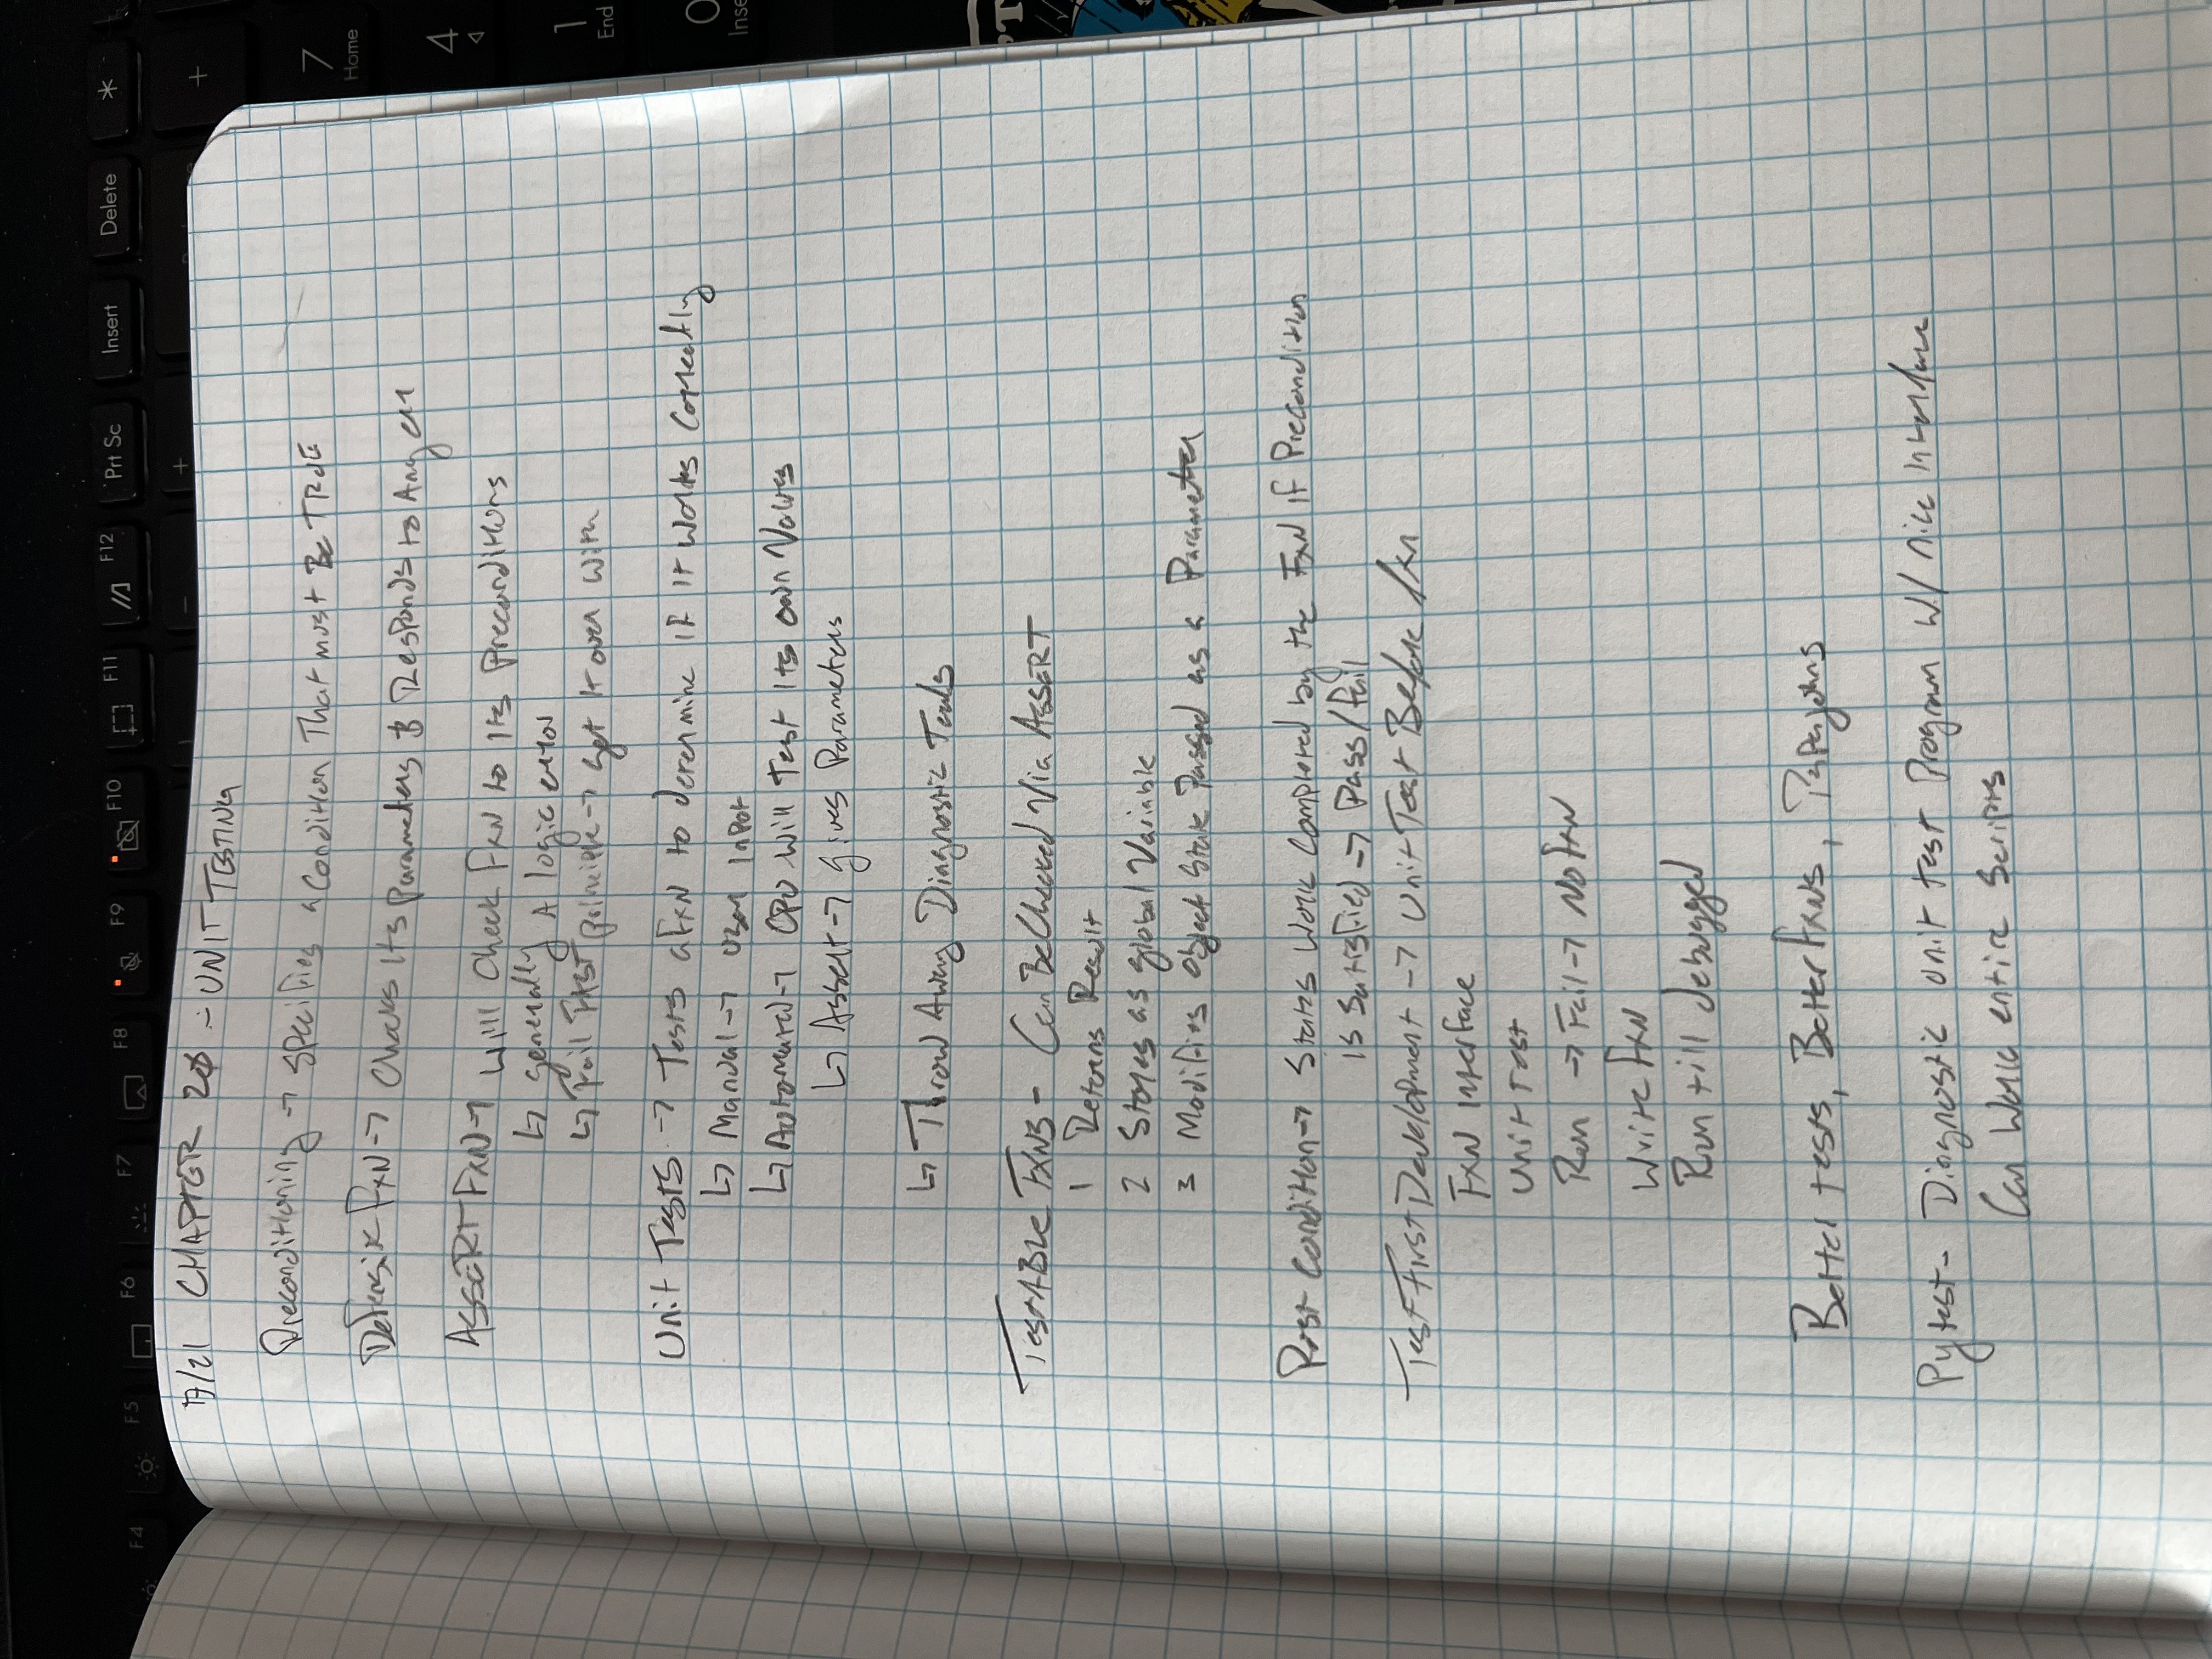 F4 F5 F6 F7 F8 F9 F10 F11 F12 Prt Sc Insert Delete *
+
7
Home
4
1
End
0
Inse
7/21 CHAPTER 20 - UNIT TESTING
Preconditioning → Specifies a Condition That must Be TRUE
Defensive FxN → Checks Its Parameters & Responds to Any err
ASSERT FxN → Will Check FxN to Its Preconditions
↳ generally A logic error
↳ Fail FAST principle → get it over with
Unit Tests → Tests a FxN to determine if it works Correctly
↳ Manual → User Input
↳ Automated → CPU Will Test Its own Values
↳ Assert → gives Parameters
↳ Throw Away Diagnostic Tools
TestABle FXNS - Can Be Checked Via ASSERT
1 Returns Result
2 Stores as global Variable
3 Modifies object State Passed as a Parameter
Post Condition → States Work Completed by the FxN if Precondition
is Satisfied → Pass/fail
Test First Development → Unit Test Before fxn
FXN Interface
Unit Test
Run → Fail → No fxN
Write fxN
Run till debugged
Better tests, Better fxNs, Papa johns
Pytest - Diagnostic unit test Program w/ nice interface
Can Work entire Scripts